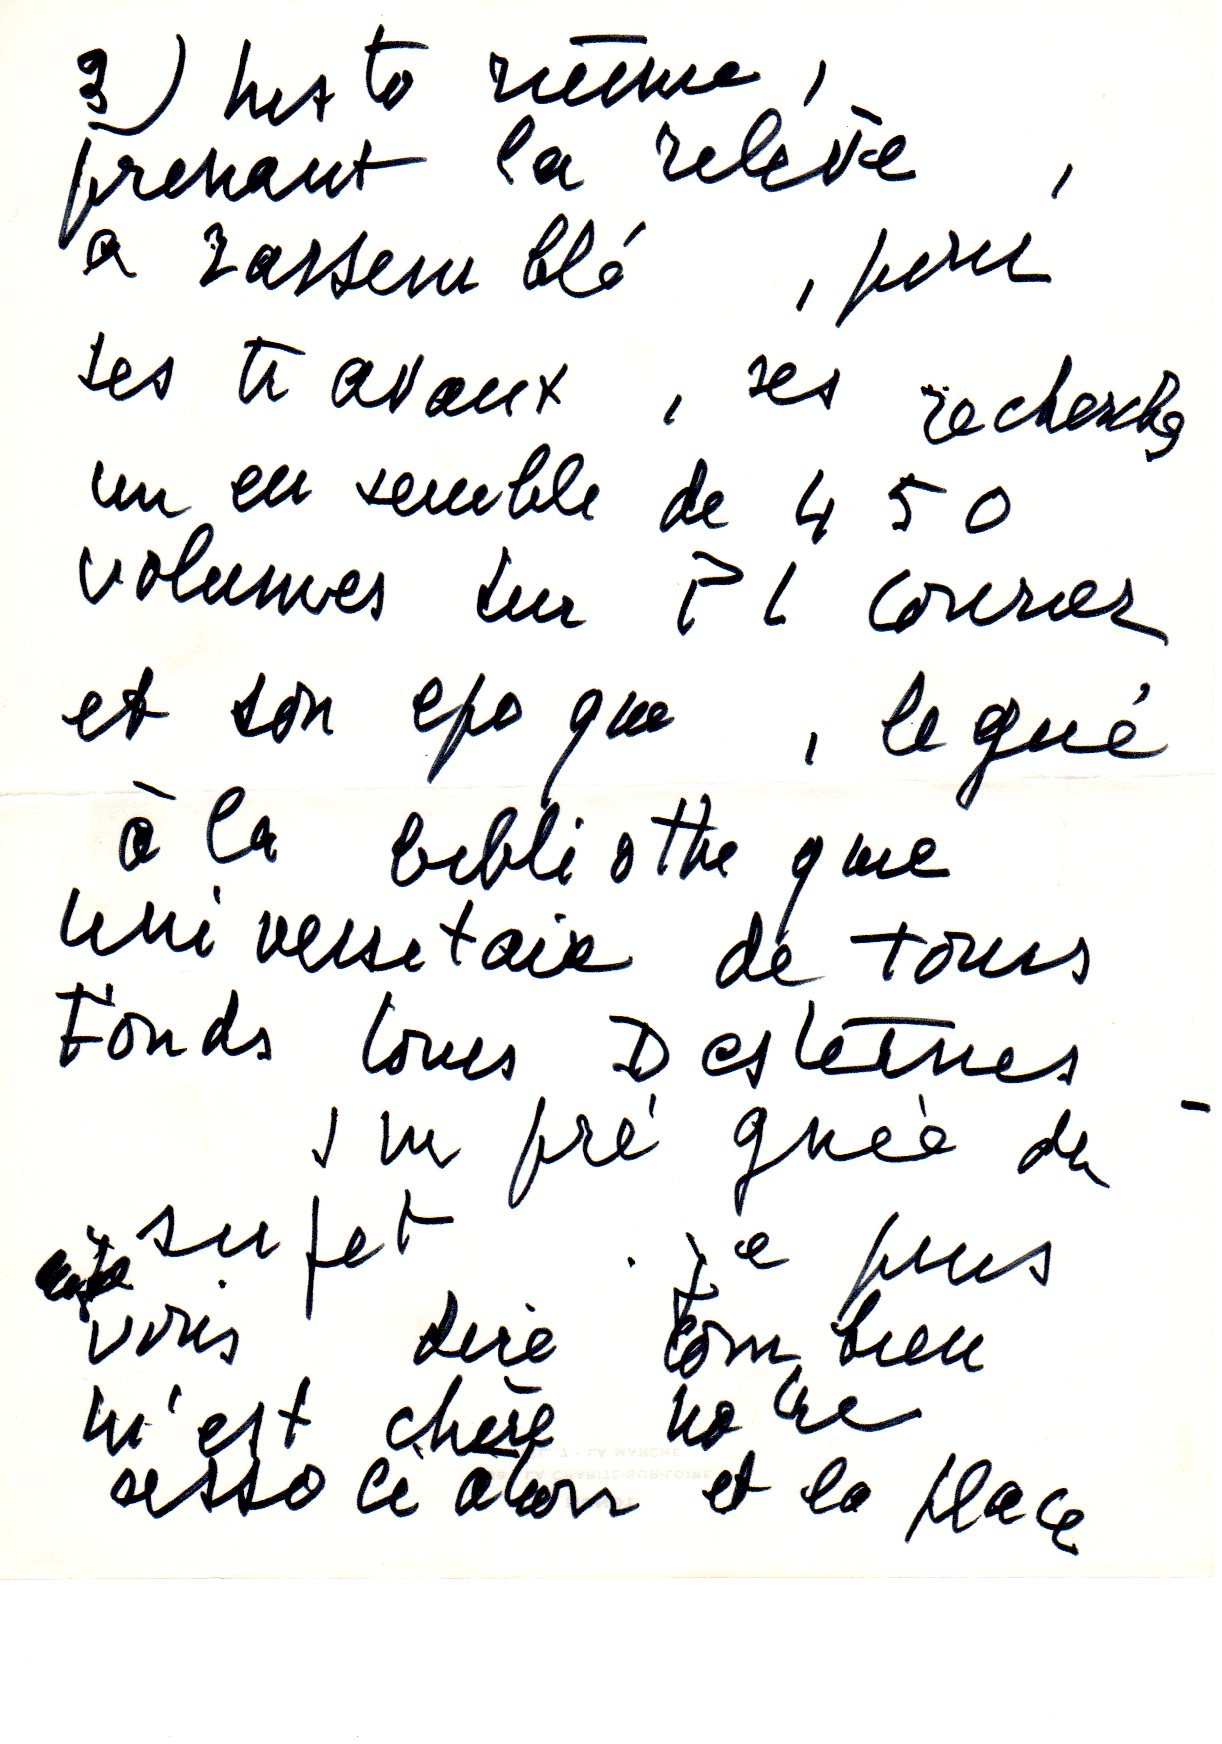 3)
prenant la relève,
a rassemblé, pour
ses travaux, ses recherches
un ensemble de 450
volumes sur PL Courier
et son epoque, legué
à la bibliothèque
universitaire de Tours
Fonds Louis Desternes
Imprégnée du
sujet. Je puis
vous dire combien
m'est chère notre
association et la place